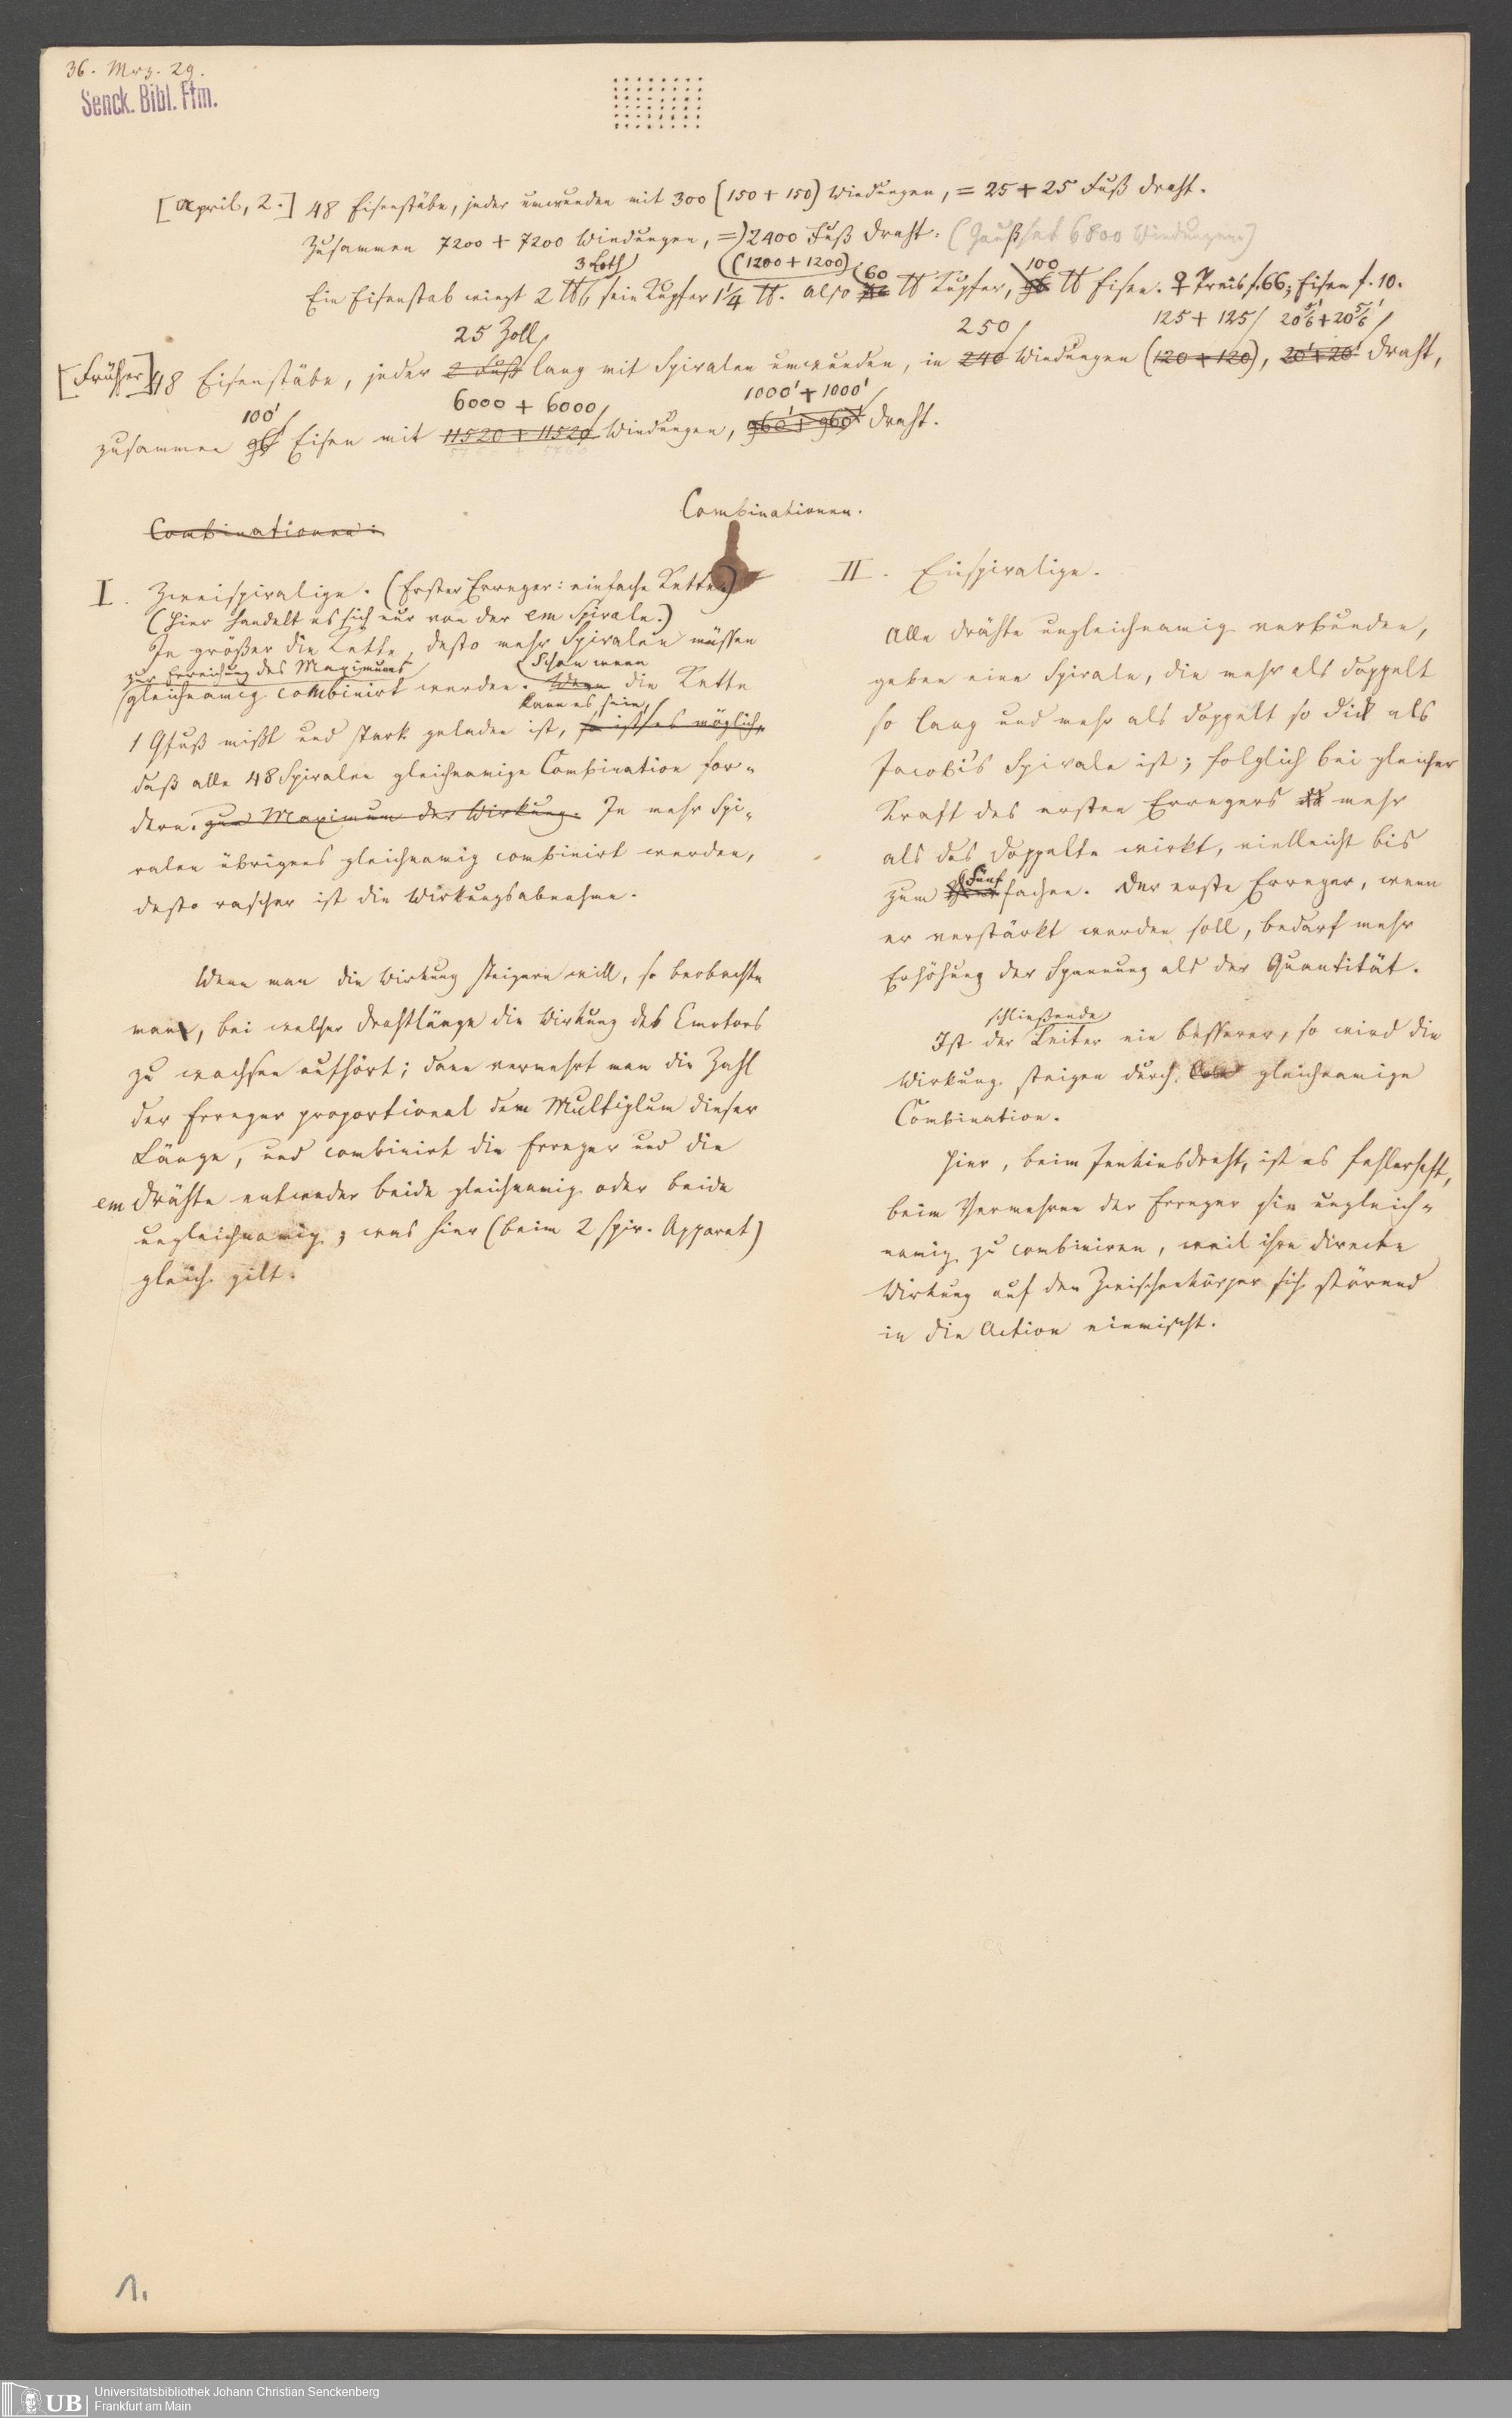 36. Mrz. 29.
Senck. Bibl. Ffm.
[April, 2.] 48 Eisenstäbe, jeder umwunden mit 300 (150 + 150) Windungen, = 25 + 25 Fuß Draht.
Zusammen 7200 + 7200 Windungen, = 2400 Fuß Draht. (Gauß hat 6800 Windungen)
3 Loth (1200 + 1200) 60 100
Ein Eisenstab wiegt 2 ℔, sein Kupfer 1¼ ℔. Also ℔ Kupfer, 96 ℔ Eisen. ♀ Preis f. 66; Eisen f. 10.
25 Zoll 250 125 + 125 20 5/6' + 20 5/6'
[Früher] 48 Eisenstäbe, jeder 2 Fuß lang mit Spiralen umwunden, in 240 Windungen (120 + 120), 20' + 20' Draht,
100' 6000 + 6000 1000' + 1000'
zusammen 96' Eisen mit 11520 + 11520 Windungen, 960' + 960' Draht.
5760 + 5760
Combinationen.
Combinationen:
I. Zweispiralige. (Erster Erreger: einfache Kette.)
(Hier handelt es sich nur von der em Spirale.)
Je größer die Kette, desto mehr Spiralen müssen
zur Erreichung des Maximums Schon wenn
gleichnamig combinirt werden. Wenn die Kette
kann es sein,
1 Qfuß mißt und stark geladen ist, so ist es möglich,
daß alle 48 Spiralen gleichnamige Combination for-
dern. zum Maximum der Wirkung. Je mehr Spi-
ralen übrigens gleichnamig combinirt werden,
desto rascher ist die Wirkungsabnahme.
Wenn man die Wirkung steigern will, so beobachte
man, bei welcher Drahtlänge die Wirkung des Emotors
zu wachsen aufhört; dann vermehrt man die Zahl
der Erreger proportional dem Multiplum dieser
Länge, und combinirt die Erreger und die
em Drähte entweder beide gleichnamig oder beide
ungleichnamig; was hier (beim 2 spir. Apparat)
gleich gilt.
II. Einspiralige.
Alle Drähte ungleichnamig verbunden,
geben eine Spirale, die mehr als doppelt
so lang und mehr als doppelt so dick als
Jacobi's Spirale ist; folglich bei gleicher
Kraft des ersten Erregers mehr
als das Doppelte wirkt, vielleicht bis
Fünf
zum fachen. Der erste Erreger, wenn
er verstärkt werden soll, bedarf mehr
Erhöhung der Spannung als der Quantität.
schließende
Ist der Leiter ein besserer, so wird die
Wirkung steigen durch gleichnamige
Combination.
Hier, beim Jenkinsdraht, ist es fehlerhaft,
beim Vermehren der Erreger sie ungleich-
namig zu combiniren, weil ihre directe
Wirkung auf den Zwischenkörper sich störend
in die Action einmischt.
1.
UB
Universitätsbibliothek Johann Christian Senckenberg
Frankfurt am Main